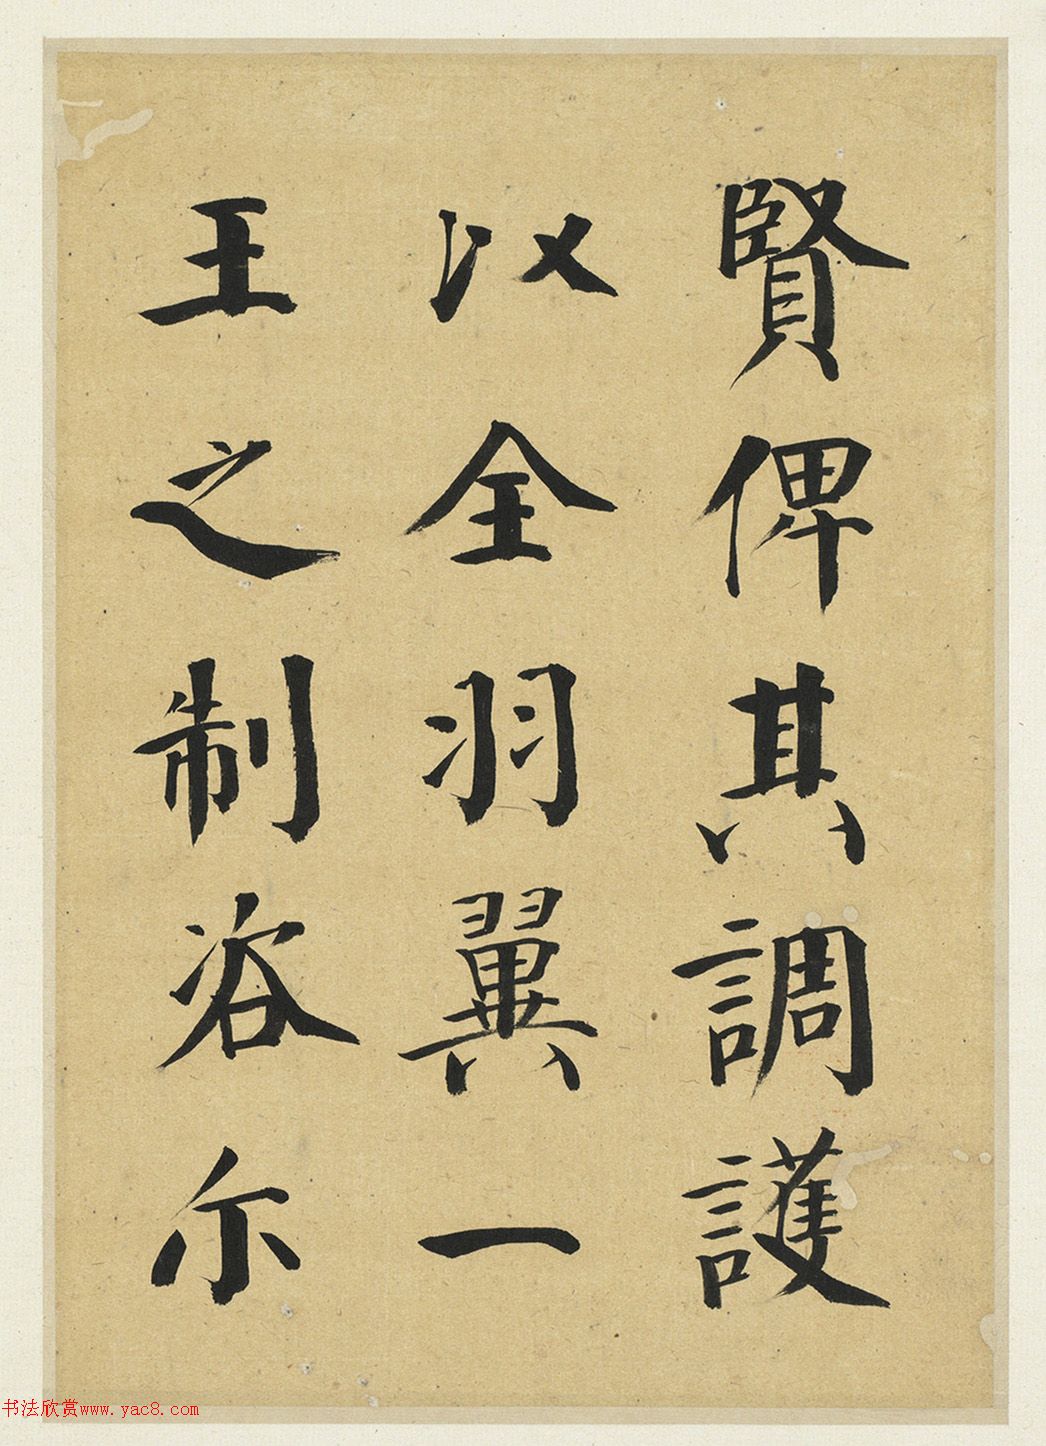 賢俾其調護
以全羽翼一
王之制咨尔
书法欣赏www.yac8.com